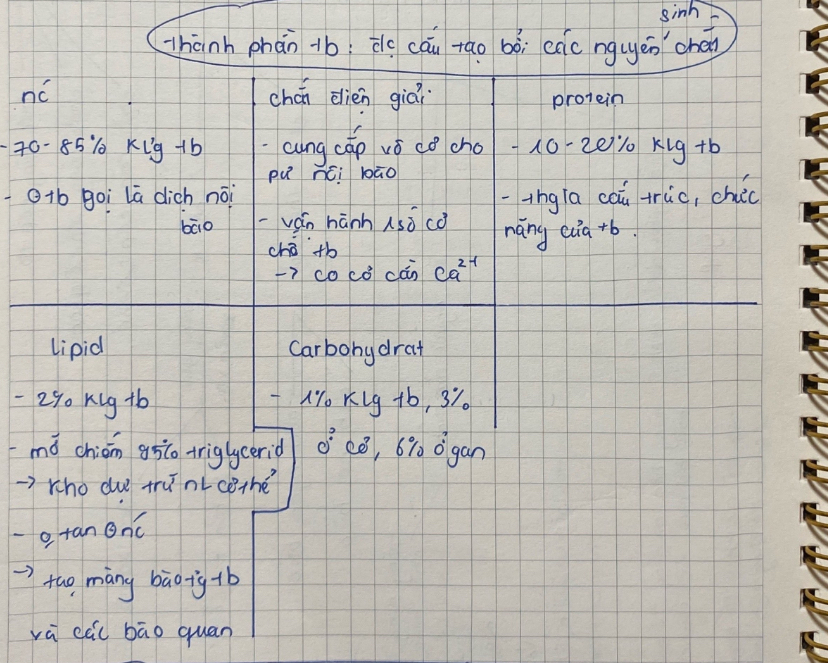 sinh -
thành phần tb : đc cấu tạo bởi các nguyên chất
nc
- 70 - 85% Klg tb
- θ tb gọi là dịch nội
bào
chất điện giải
- cung cấp vô cơ cho
pư nội bào
- vận hành 1 số cơ
chế tb
-> co cơ cần Ca²⁺
protein
- 10 - 20% Klg tb
- thgia cấu trúc, chức
năng của tb .
Lipid
- 2% Klg tb
- mỡ chiếm 95% triglycerid
-> Kho dự trữ nL cơ thể
- o tan θ nc
-> tạo màng bào tg tb
và các bào quan
Carbohydrat
- 1% Klg tb, 3%
ở cơ, 6% ở gan